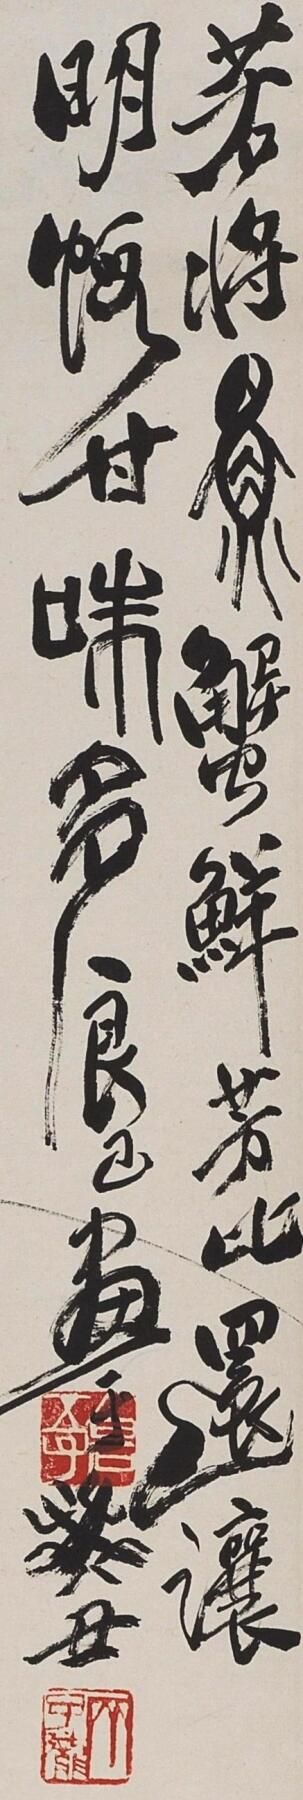 若將魚蟹鮮芳比還讓
明蝦甘味多良畫于癸丑